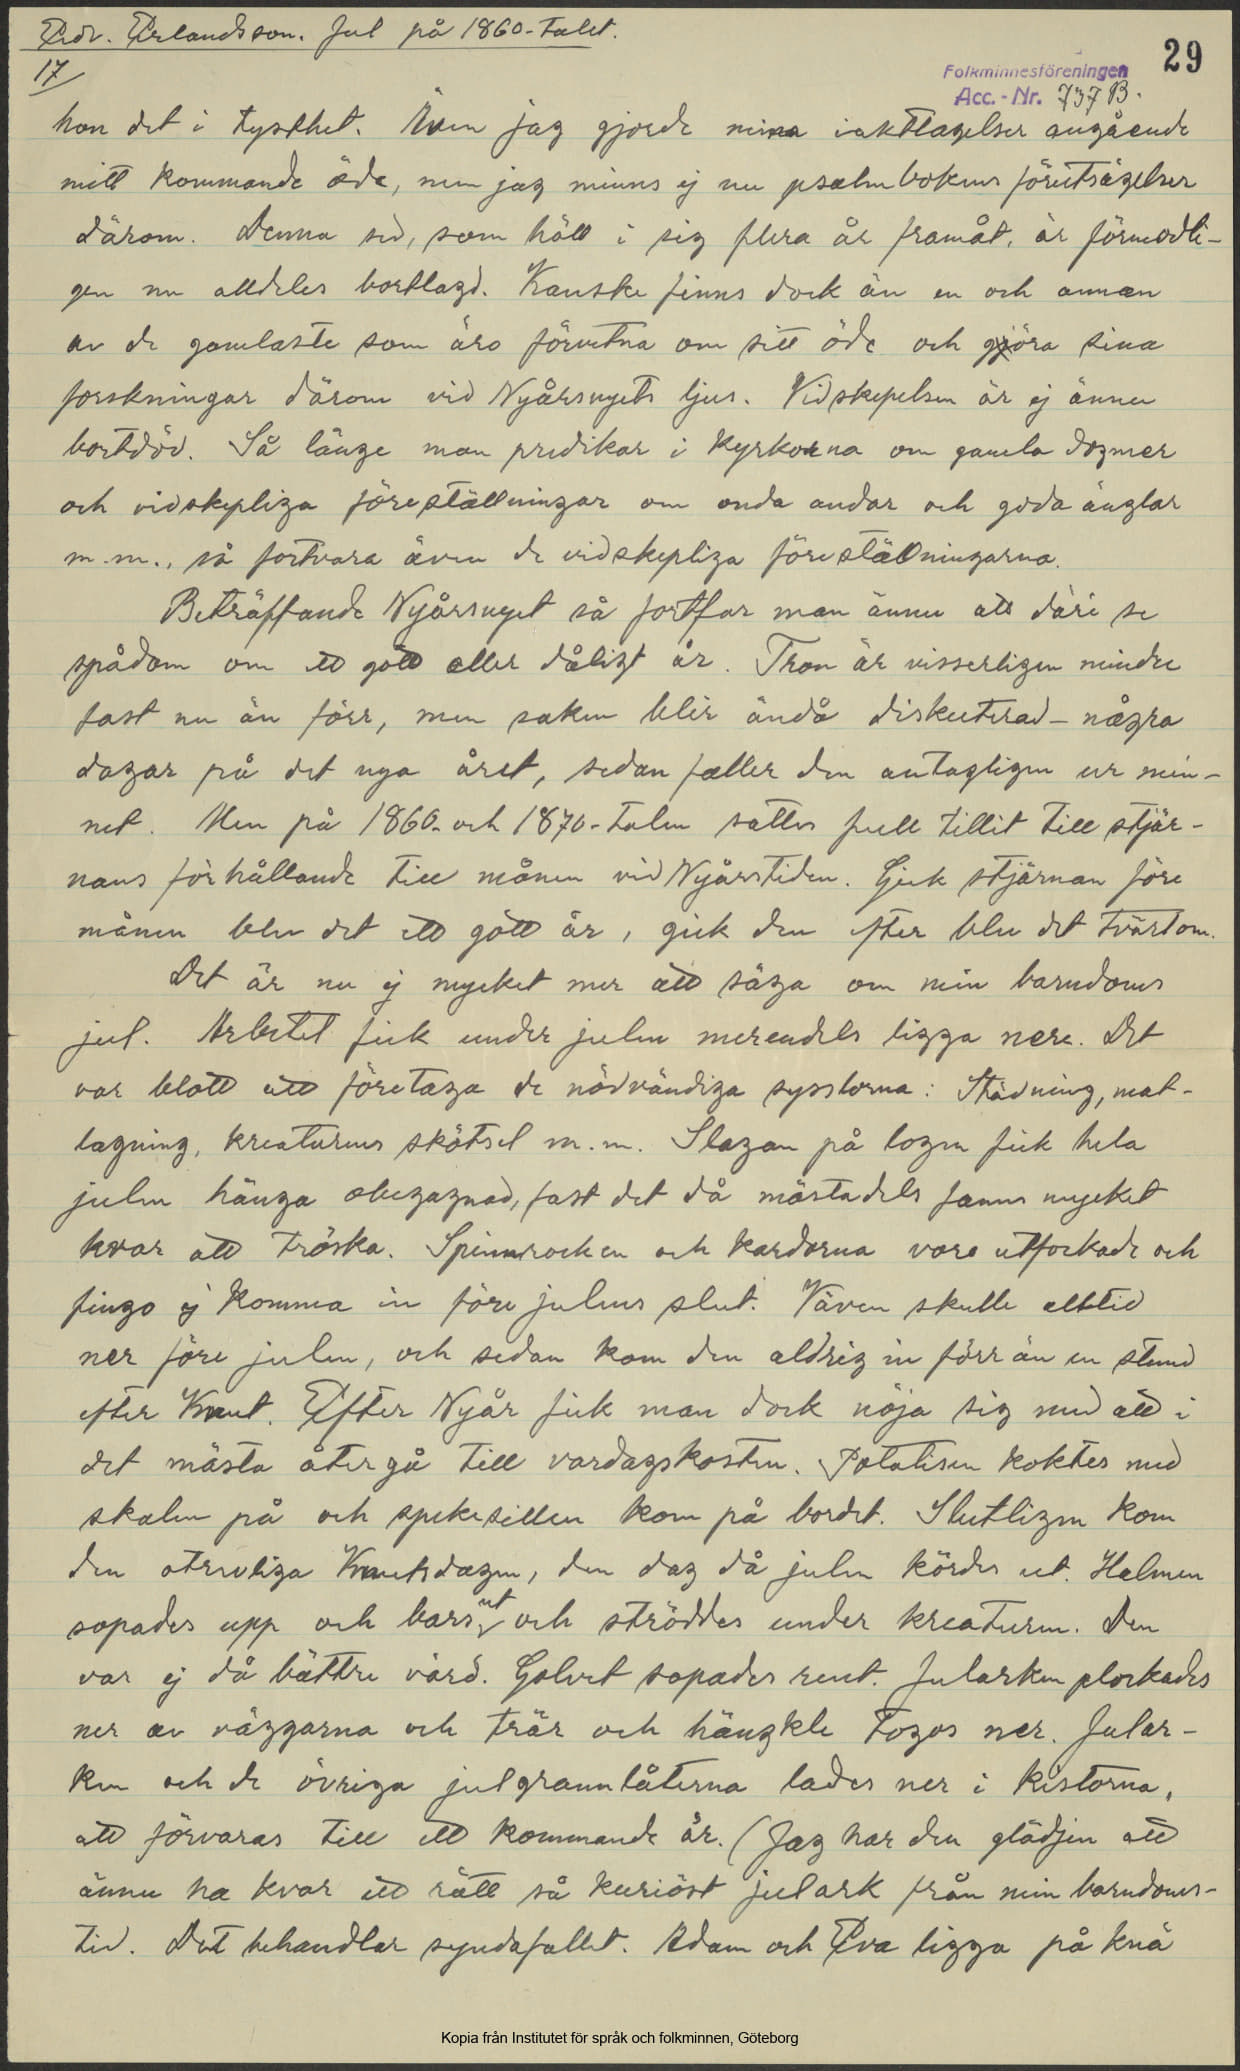 Edv. Erlandsson. Jul på 1860-talet.
17
29
Folkminnesföreningen
Acc. - Nr. 737 B.
hon det i tysthet. Även jag gjorde mina iakttagelser angående
mitt kommande öde, men jag minns ej nu psalmbokens förutsägelser
därom. Denna sed, som höll i sig flera år framåt, är förmodli-
gen nu alldeles bortlagd. Kanske finns dock än en och annan
av de gamlaste som äro förvetna om sitt öde och göra sina
forskningar därom vid Nyårsnyets ljus. Vidskepelsen är ej ännu
bortdöd. Så länge man predikar i kyrkorna om gamla dogmer
och vidskepliga föreställningar om onda andar och goda änglar
m.m., så fortvara även de vidskepliga föreställningarna.
Beträffande Nyårsnyet så fortfar man ännu att däri se
spådom om ett gott eller dåligt år. Tron är visserligen mindre
fast nu än förr, men saken blir ändå diskuterad - några
dagar på det nya året, sedan faller den antagligen ur min-
net. Men på 1860- och 1870-talen sattes full tillit till stjär-
nans förhållande till månen vid Nyårstiden. Gick stjärnan före
månen blev det ett gott år, gick den efter blev det tvärtom.
Det är nu ej mycket mer att säga om min barndoms
jul. Arbetet fick under julen merendels ligga nere. Det
var blott att företaga de nödvändiga sysslorna: Städning, mat-
lagning, kreaturens skötsel m.m. Slagan på logen fick hela
julen hänga obegagnad, fast det då mästadels fanns mycket
kvar att tröska. Spinnrocken och kardorna voro utfockade och
fingo ej komma in före julens slut. Väven skulle alltid
ner före julen, och sedan kom den aldrig in förr än en stund
efter Knut. Efter Nyår fick man dock nöja sig med att i
det mästa återgå till vardagskosten. Potatisen koktes med
skalen på och spekesillen kom på bordet. Slutligen kom
den otrevliga Knutsdagen, den dag då julen kördes ut. Halmen
sopades upp och bars ut och ströddes under kreaturen. Den
var ej då bättre värd. Golvet sopades rent. Jularken plockades
ner av väggarna och trär och hängkle togos ner. Jular-
ken och de övriga julgrannlåterna lades ner i kistorna,
att förvaras till ett kommande år. (Jag har den glädjen att
ännu ha kvar ett rätt så kuriöst julark från min barndoms-
tid. Det behandlar syndafallet. Adam och Eva ligga på knä
Kopia från Institutet för språk och folkminnen, Göteborg